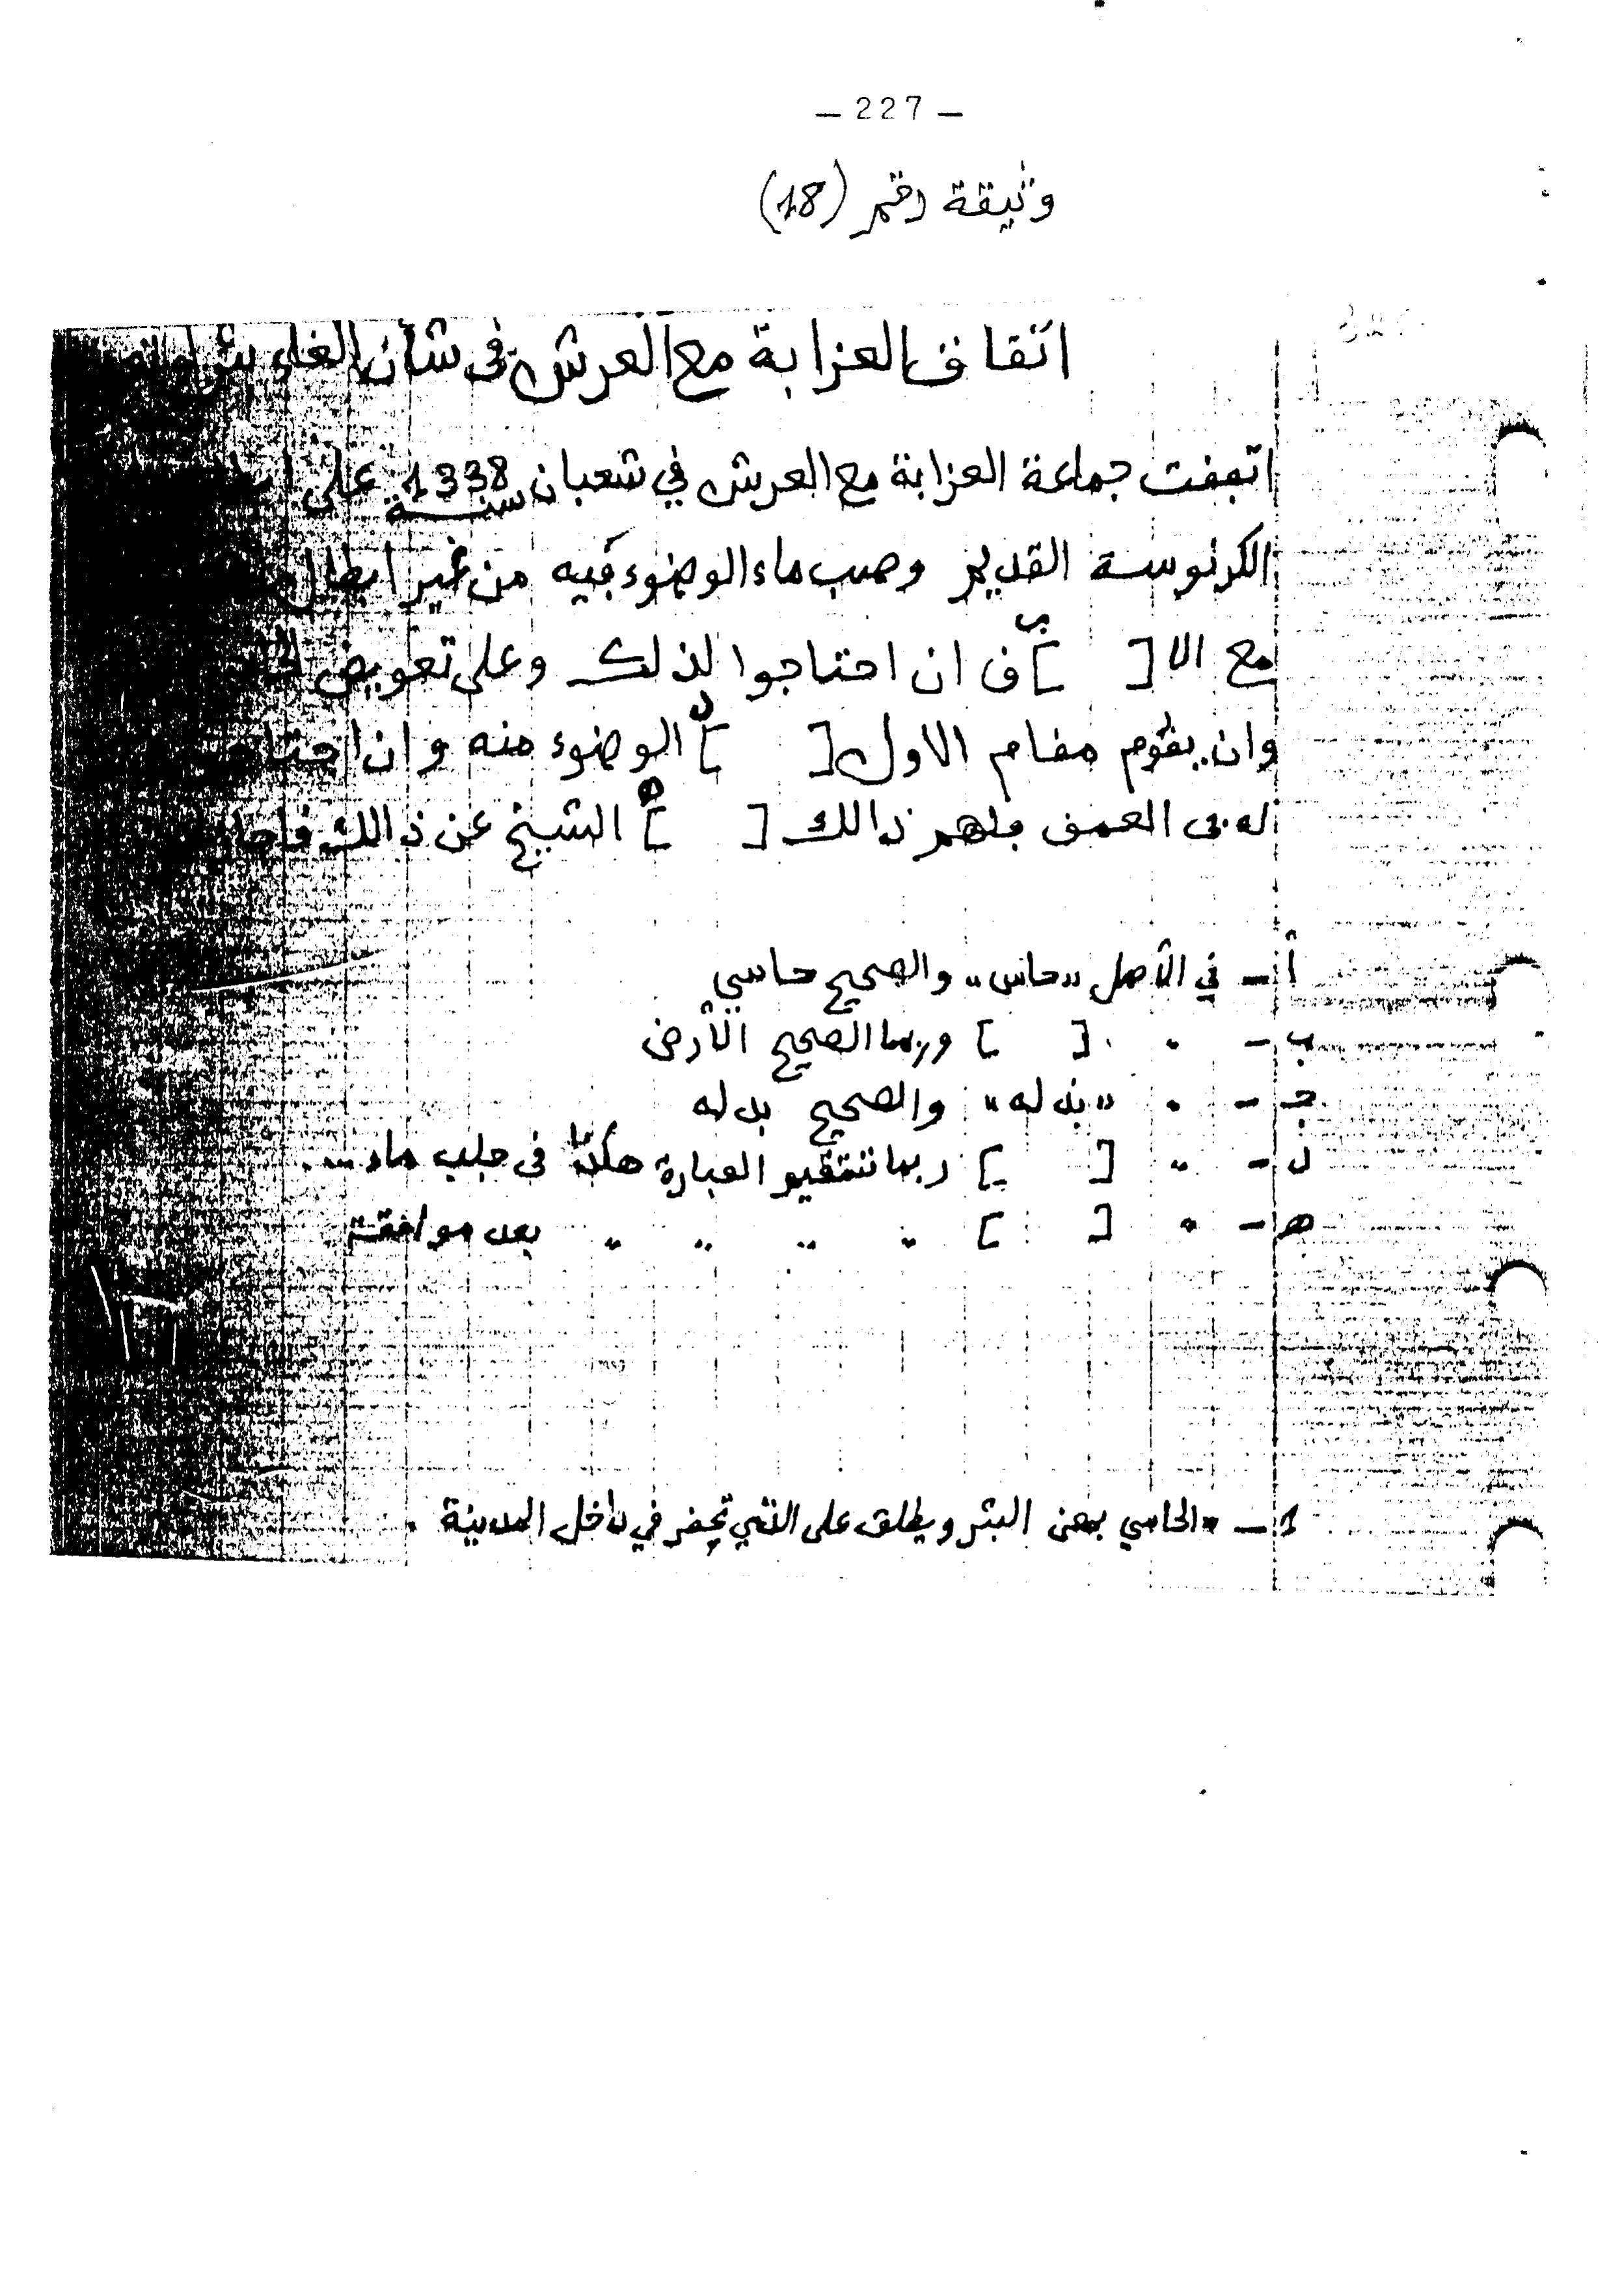 — 227 —
وثيقة رقم (18)
اتفاق العزابة مع العرش في شأن الغاء بئر
اتفقت جماعة العزابة مع العرش في شعبان سنة 1338 على
الكرنوسة القديم وصب ماء الوضوء فيه من غير ابطال
مع الا [ ]ب ف ان احتاجوا لذلك وعلى تعويض
وان يقوم مقام الاول [ ]د الوضوء منه وان
العمق فلهم ذالك [ ]ه الشيخ عن ذالك
أ – في الأصل "حاس" والصحيح حاسي
ب – " [ ] وربما الصحيح الأرض
جـ – " "بذله" والصحيح بدله
د – " [ ] ربما تستقيم العبارة هكذا في جلب ماء ...
هـ – " [ ] " " " " بعد موافقة
1 – "الحاسي بمعن البئر ويطلق على التي تحفر في داخل المدينة .